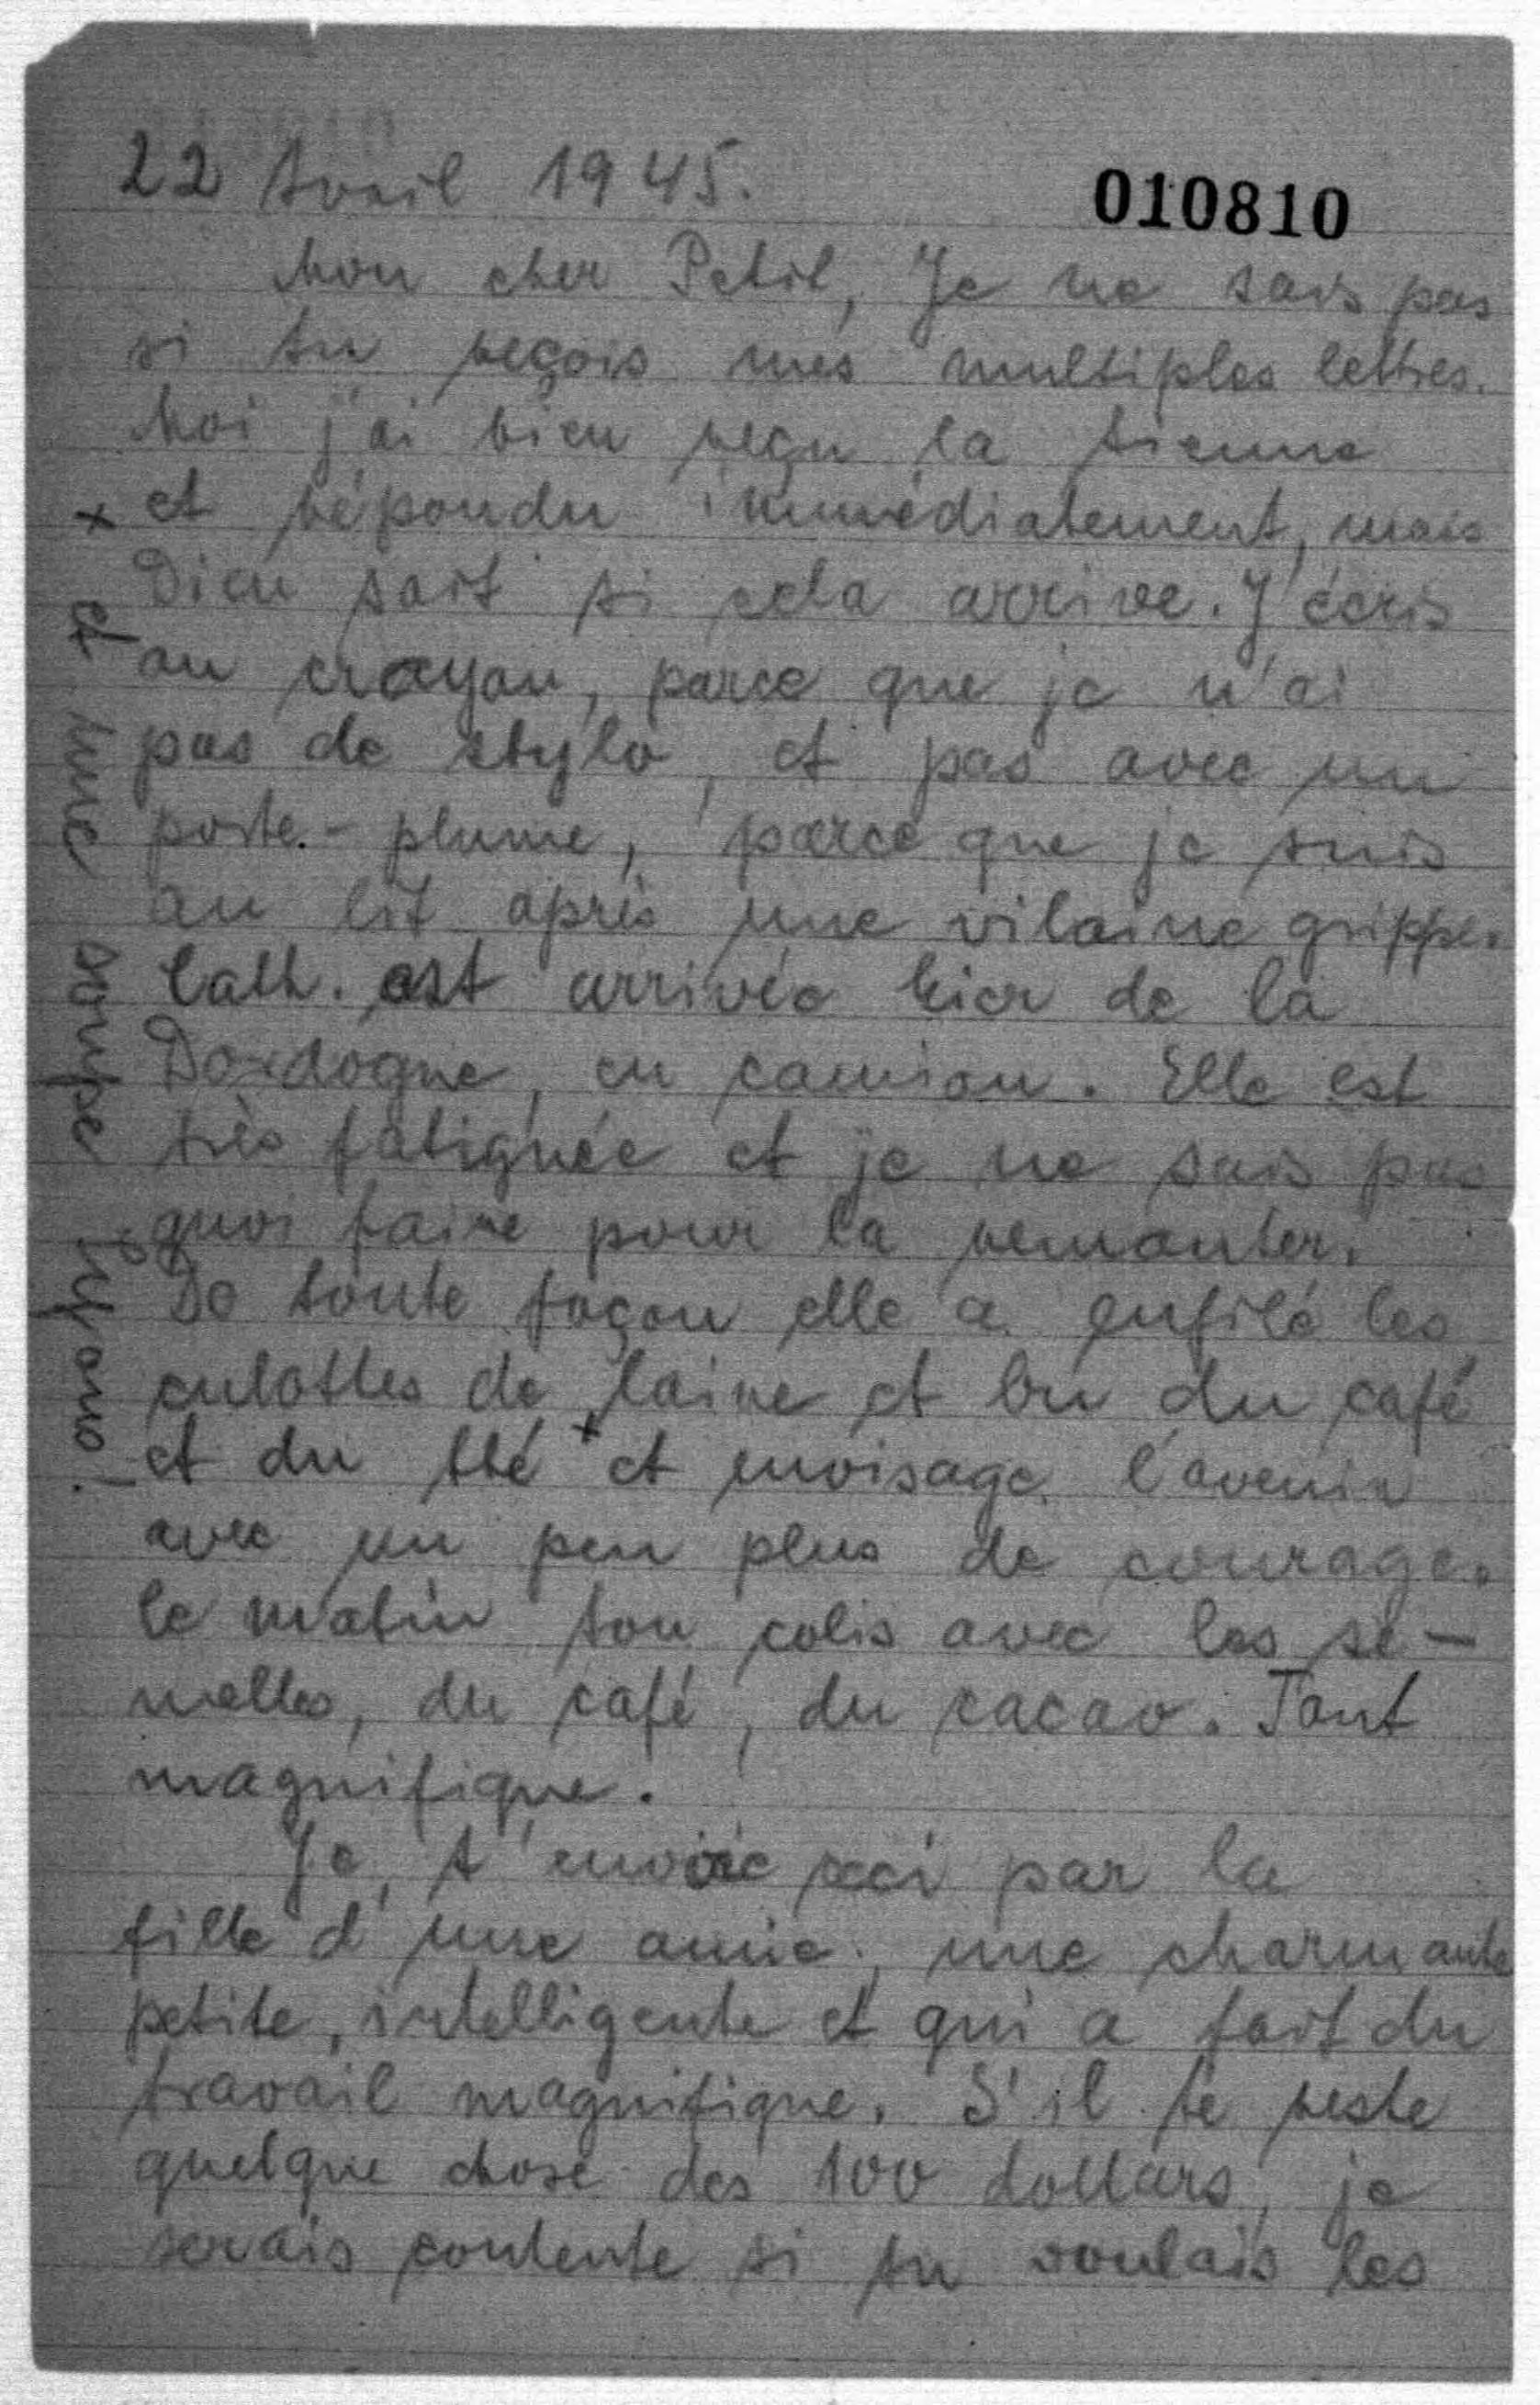 22 Avril 1945.
010810
Mon cher Petit, Je ne sais pas
si tu reçois mes multiples lettres.
Moi j'ai bien reçu la tienne
et répondu immédiatement, mais
Dieu sait si cela arrive. J'écris
au crayon, parce que je n'ai
pas de stylo, et pas avec un
porte-plume, parce que je suis
au lit après une vilaine grippe.
Cath. est arrivée hier de la
Dordogne, en camion. Elle est
très fatiguée et je ne sais pas
quoi faire pour la remonter.
De toute façon elle a enfilé les
culottes de laine et bu du café
et du thé + et envisage l'avenir
avec un peu plus de courage.
Ce matin ton colis avec les se-
melles, du café, du cacao. Tout
magnifique.
Je t'envoie ceci par la
fille d'une amie, une charmante
petite, intelligente et qui a fait du
travail magnifique. S'il te reste
quelque chose des 100 dollars, je
serais contente si tu voulais les
+ et une soupe